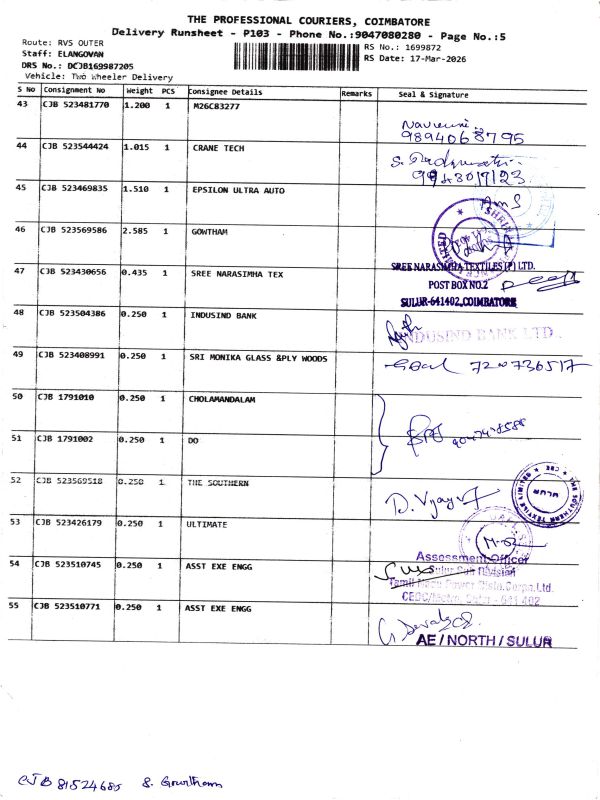 THE PROFESSIONAL COURIERS, COIMBATORE
Delivery Runsheet - P103 - Phone No.:9047080280 - Page No.:5
Route: RVS OUTER
RS No.: 1699872
Staff: ELANGOVAN
RS Date: 17-Mar-2026
DRS No.: DCJB169987205
Vehicle: Two Wheeler Delivery
S No Consignment No Weight PCS Consignee Details Remarks Seal & Signature
43 CJB 523481770 1.200 1 M26C83277
9894068795
44 CJB 523544424 1.015 1 CRANE TECH
45 CJB 523469835 1.510 1 EPSILON ULTRA AUTO
46 CJB 523569586 2.585 1 GOWTHAM
47 CJB 523430656 0.435 1 SREE NARASIMHA TEX
SREE NARASIMHA TEXTILES (P) LTD.
POST BOX NO.2
SULUR-641402, COIMBATORE
48 CJB 523504386 0.250 1 INDUSIND BANK
INDUSIND BANK LTD.
49 CJB 523408991 0.250 1 SRI MONIKA GLASS &PLY WOODS
7200736517
50 CJB 1791010 0.250 1 CHOLAMANDALAM
51 CJB 1791002 0.250 1 DO
52 CJB 523569518 0.250 1 THE SOUTHERN
D. Vijay
53 CJB 523426179 0.250 1 ULTIMATE
54 CJB 523510745 0.250 1 ASST EXE ENGG
Assessment Officer
Sulur Sub Division
55 CJB 523510771 0.250 1 ASST EXE ENGG
AE / NORTH / SULUR
CJB 81524685 S. Gowtham